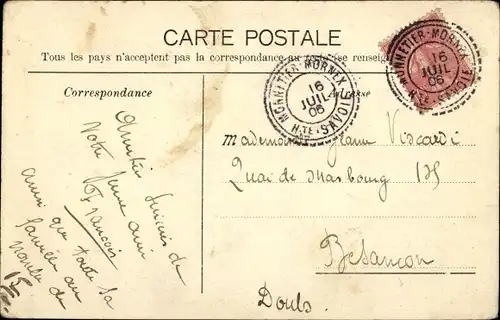 CARTE POSTALE
Tous les pays n'acceptent pas la correspondance au
Correspondance
Adresse
MONNETIER-MORNEX
16
JUIL
06
HTE-SAVOIE
MONNETIER-MORNEX
16
JUIL
06
HTE-SAVOIE
Mademoiselle Jeanne Viscardi
Quai de Strasbourg
Besançon
Doubs
Amitiés de
Votre jeune ami
François
ainsi que toute sa
famille au